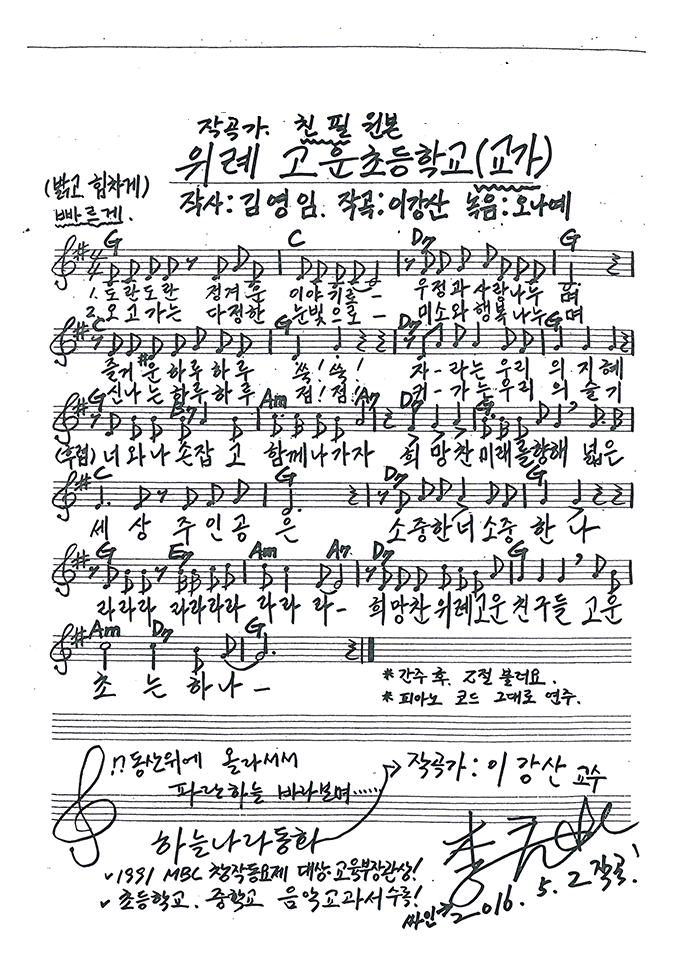 작곡가. 친필 원본
위례 고운초등학교(교가)
(밝고 힘차게)
빠르게.
작사:김영임. 작곡:이강산 녹음:오나예
G C D7 G
1. 도란도란 정겨운 이야기로 - 우정과 사랑나누며
2. 오고가는 다정한 눈빛으로 - 미소와 행복나누며
C G D7 G
즐거운하루하루 쑥!쑥! 자-라는우리의지혜
신나는하루하루 점!점! 커-가는우리의슬기
G E7 Am A7 D7 G
(후렴) 너와나손잡고 함께나가자 희망찬미래를향해 넓은
C G D7 G
세상주인공은 소중한너소중한나
G E7 Am A7 D7 G
라라라 라라라라 라라 라- 희망찬위례고운친구들 고운
Am D7 G
초는하나-
*간주후. 2절 불러요.
*피아노 코드 그대로 연주.
동산위에 올라서서
파란하늘 바라보며······
작곡가:이강산 교수
하늘나라동화
✓1991 MBC 창작동요제 대상·교육부장관상!
✓초등학교.중학교 음악교과서수록!
싸인→2016.5.2작곡!